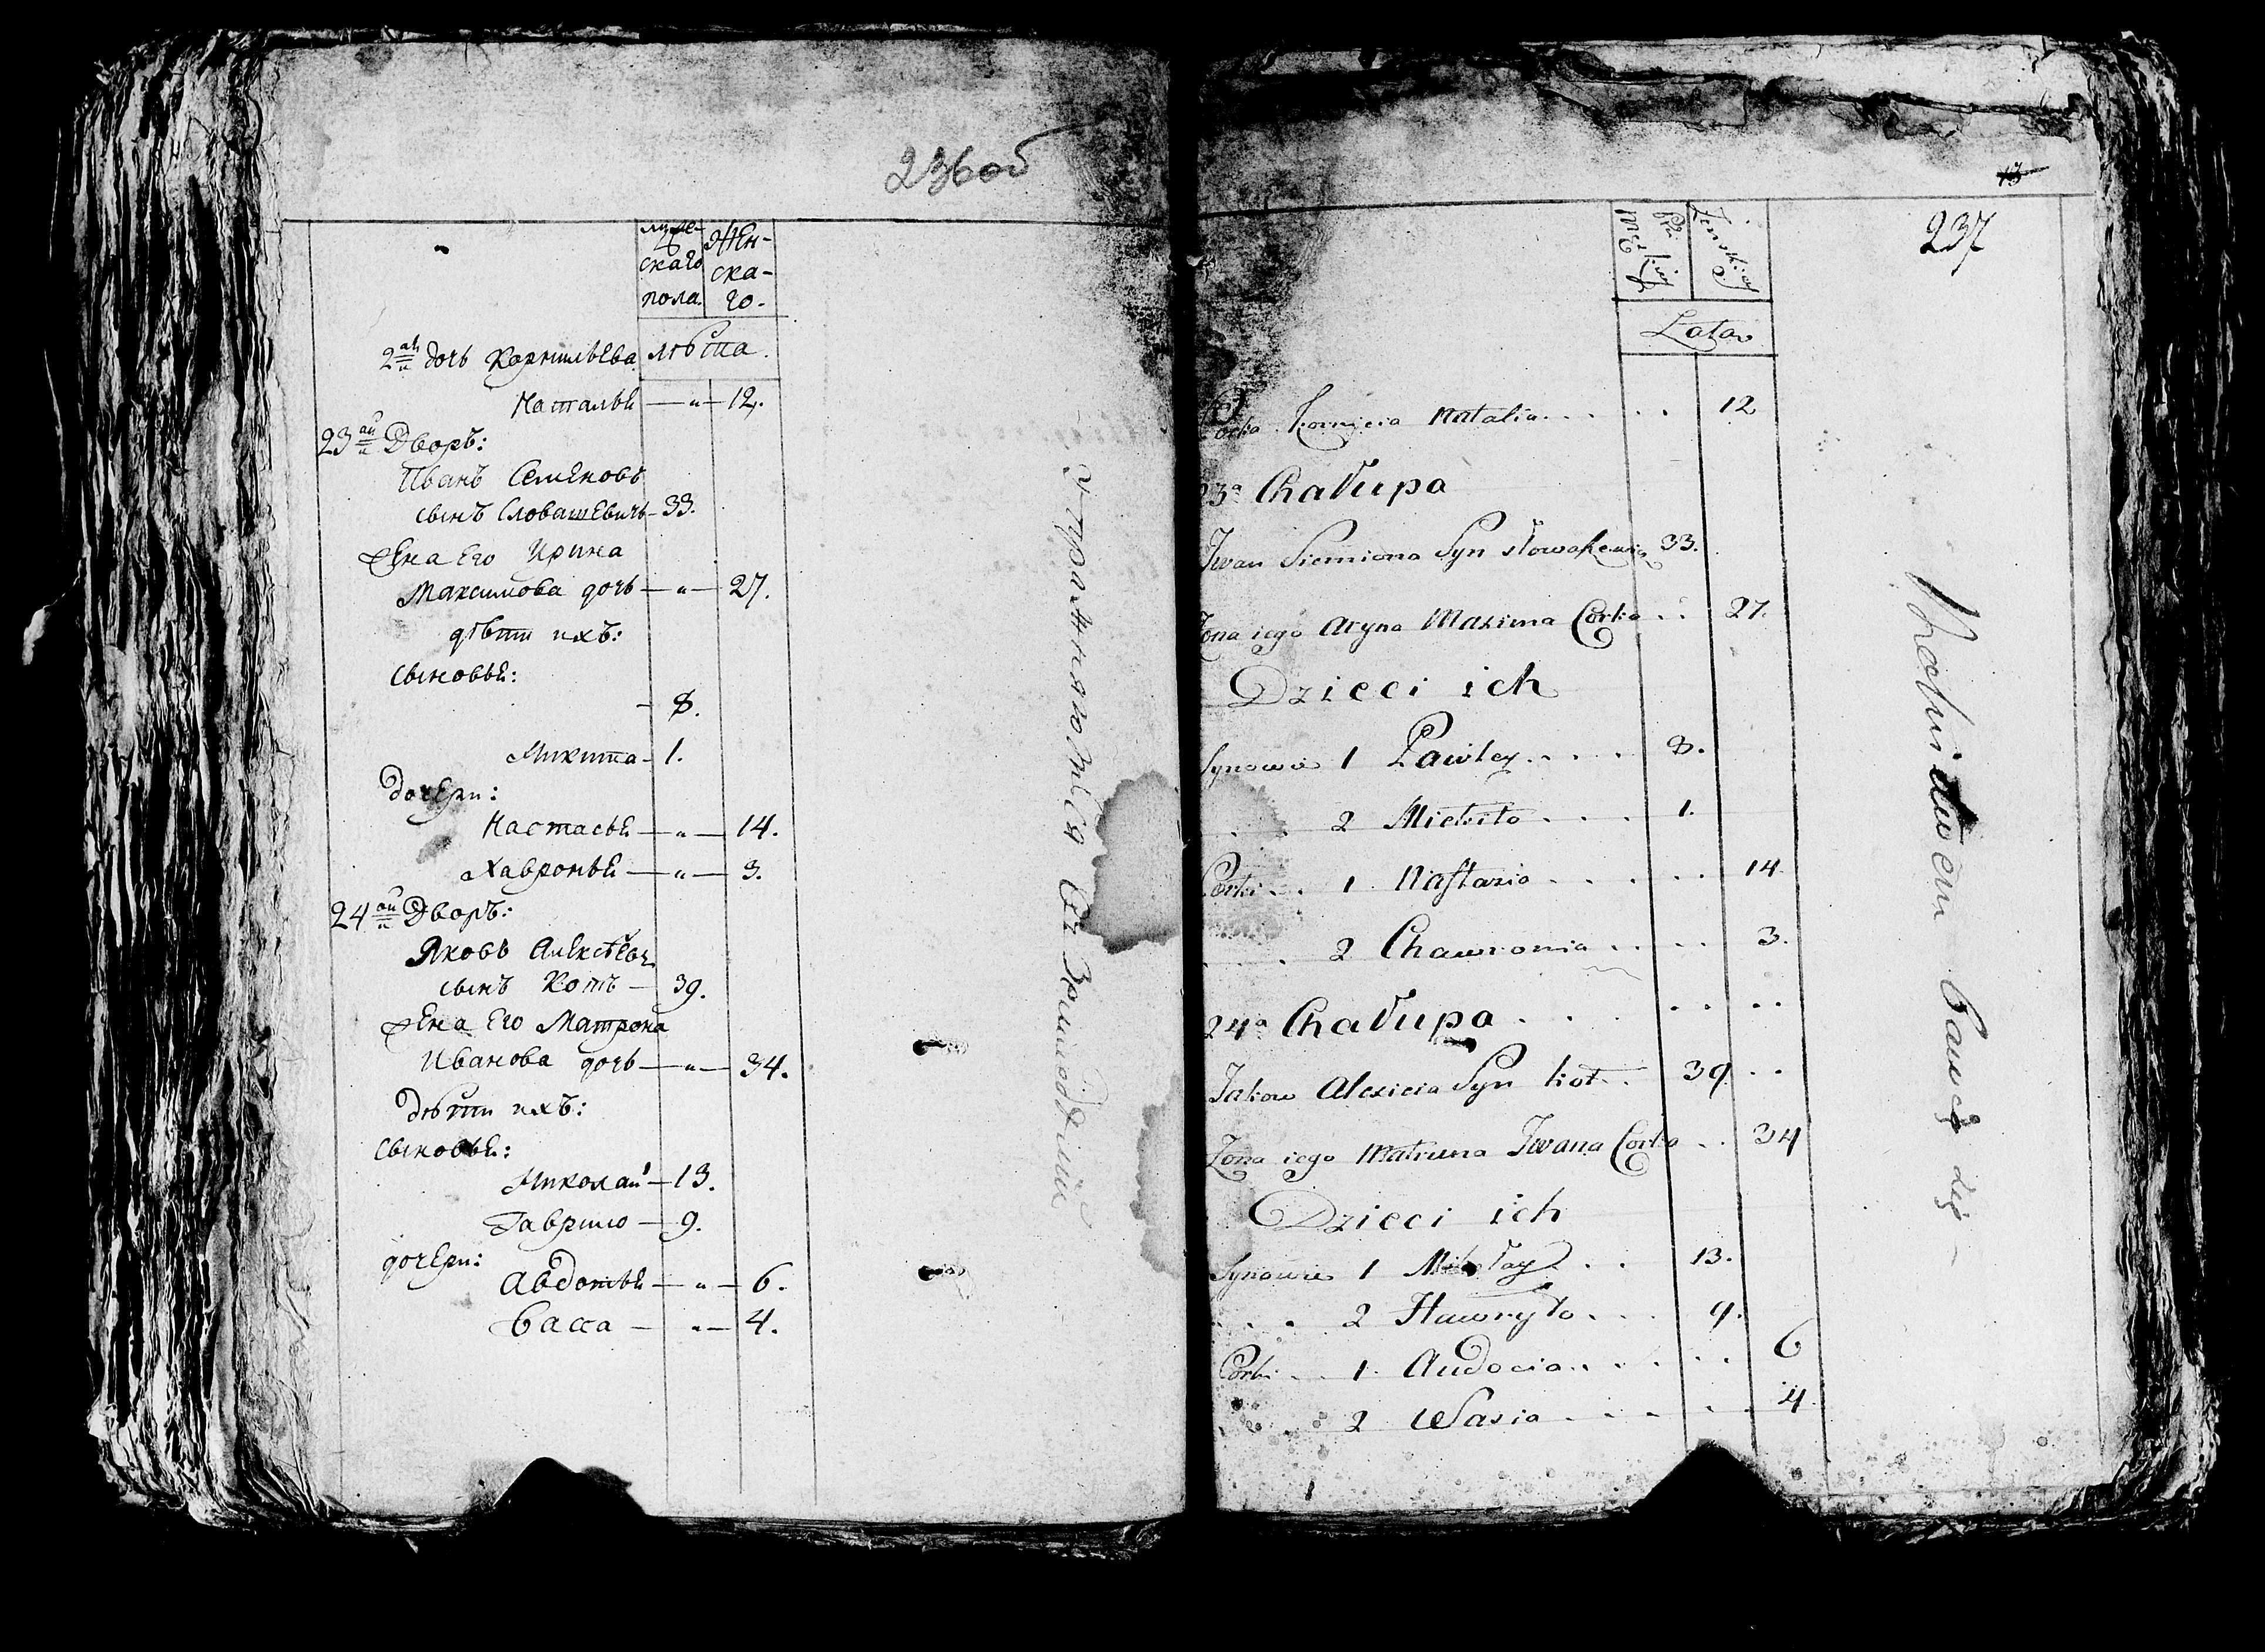 236об
муже-
скаго
пола.
Жен-
ска-
го.
лѣта.
2ая дочь Корнильева
Наталья — „ — 12.
23ай Дворъ:
Иванъ Семеновъ
сынъ Словашевичь — 33.
Жена Его Ирина
Максимова дочь — „ — 27.
дѣти ихъ:
сыновья:
— 8.
Микита — 1.
дочери:
Настасья — „ — 14.
Хавронья — „ — 3.
24ой Дворъ:
Яковъ Алексѣевъ
сынъ Котъ — 39.
Жена Его Матрона
Иванова дочь — „ — 34.
Дѣти ихъ:
сыновья:
Николай — 13.
Гаврило — 9.
дочери:
Авдотья — „ — 6.
Васса — „ — 4.
13
237
Męskiey
Płci
Żenskiey
Lata
2 Corka Kornieia Natalia . . . . . 12
23a Chałupa
Jwan Siemiona Syn Słowaszewicz 33.
Żona iego Aryna Maxima Corka . . 27.
Dzieci ich
Synowie 1 Pawley . . . . 8.
. . 2 Mickito . . . . 1.
Corki . . 1 Nastazia . . . . . . 14
. . 2 Chawronia . . . . 3.
24a Chałupa . . . . . . .
Jakow Alexieia Syn Kot . . 39 . .
Żona iego Matruna Jwana Corka . . 34
Dzieci ich
Synowie 1 Mikołay . . . 13.
. . . 2 Hawryło . . . 9.
Corki . . 1. Audocia . . . . . . 6
. . 2 Wasia . . . . . . 4.